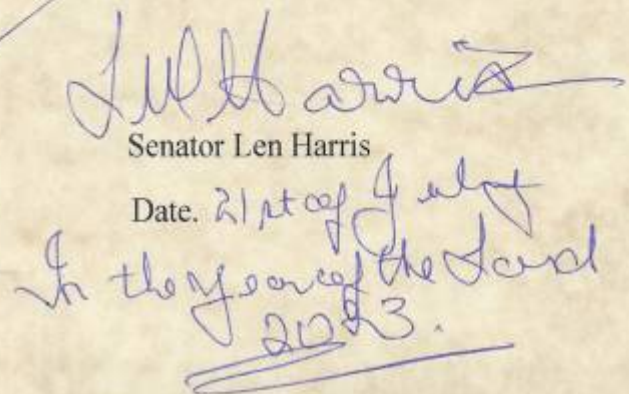 LW Harris
Senator Len Harris
Date. 21st of July
In the Year of the Lord
2023.